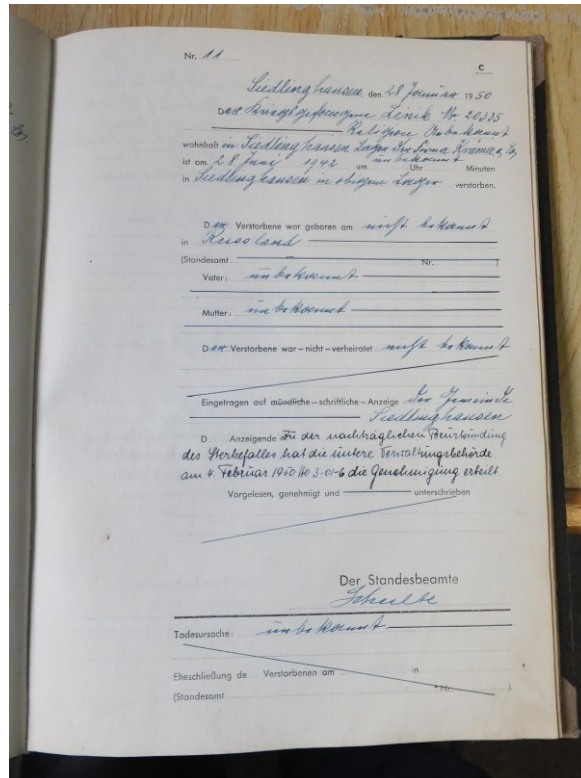 Nr. 11
C
Siedlinghausen den 28 Januar 1950
Der Kriegsgefangene Linik Nr. 20335
Religion Unbekannt
wohnhaft in Siedlinghausen Lager der Firma
ist am 28 Juni 1942 um unbekannt Uhr Minuten
in Siedlinghausen in obigem Lager verstorben.
Der Verstorbene war geboren am nicht bekannt
in Russland
(Standesamt Nr. )
Vater: unbekannt
Mutter: unbekannt
Der Verstorbene war – nicht – verheiratet nicht bekannt
Eingetragen auf mündliche – schriftliche – Anzeige der Gemeinde
Siedlinghausen
D Anzeigende Zu der nachträglichen Beurkundung
des Sterbefalles hat die untere Verwaltungsbehörde
am 4. Februar 1950 die Genehmigung erteilt.
Vorgelesen, genehmigt und unterschrieben
Der Standesbeamte
Schulte
Todesursache: unbekannt
Eheschließung de Verstorbenen am in
(Standesamt Nr. ).